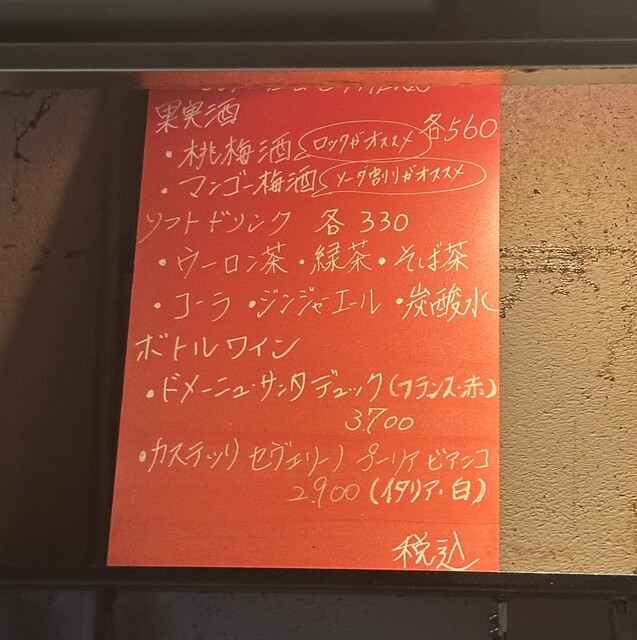 果実酒 各560
・桃梅酒 ロックがオススメ
・マンゴー梅酒 ソーダ割りがオススメ
ソフトドリンク 各330
・ウーロン茶・緑茶・そば茶
・コーラ・ジンジャーエール・炭酸水
ボトルワイン
・ドメーニュ・サンタデュック(フランス・赤)
3.700
・カステッリ セヴェリーノ プーリア ビアンコ
2.900(イタリア・白)
税込